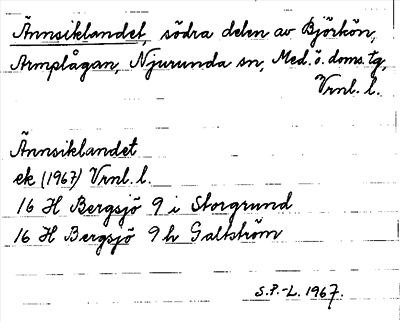 Ännsiklandet, södra delen av Björkön,
Armplågan, Njurunda sn, Med. ö. doms. tg,
Vrnl. l.
Ännsiklandet
ek (1967) Vrnl. l.
16 H Bergsjö 9 i Storgrund
16 H Bergsjö 9 h Galtström
S.P.-L. 1967.